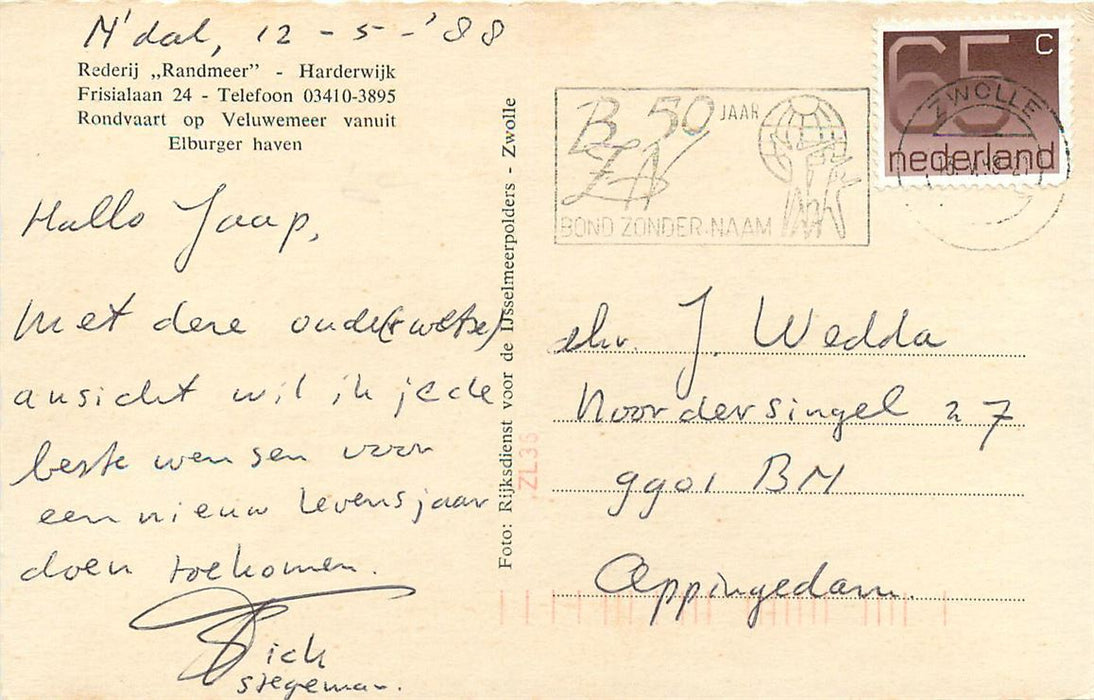 N'dal, 12 - 5 - '88
Rederij „Randmeer” - Harderwijk
Frisialaan 24 - Telefoon 03410-3895
Rondvaart op Veluwemeer vanuit
Elburger haven
Hallo Jaap,
Met deze oude(rwetse)
ansicht wil ik je de
beste wensen voor
een nieuw levensjaar
doen toekomen.
Dick
Stegeman.
Foto: Rijksdienst voor de IJsselmeerpolders - Zwolle
ZL36
BZN 50 JAAR
BOND ZONDER NAAM
65 C
nederland
ZWOLLE
dhr. J. Wedda
Noordersingel 27
9901 BM
Appingedam.